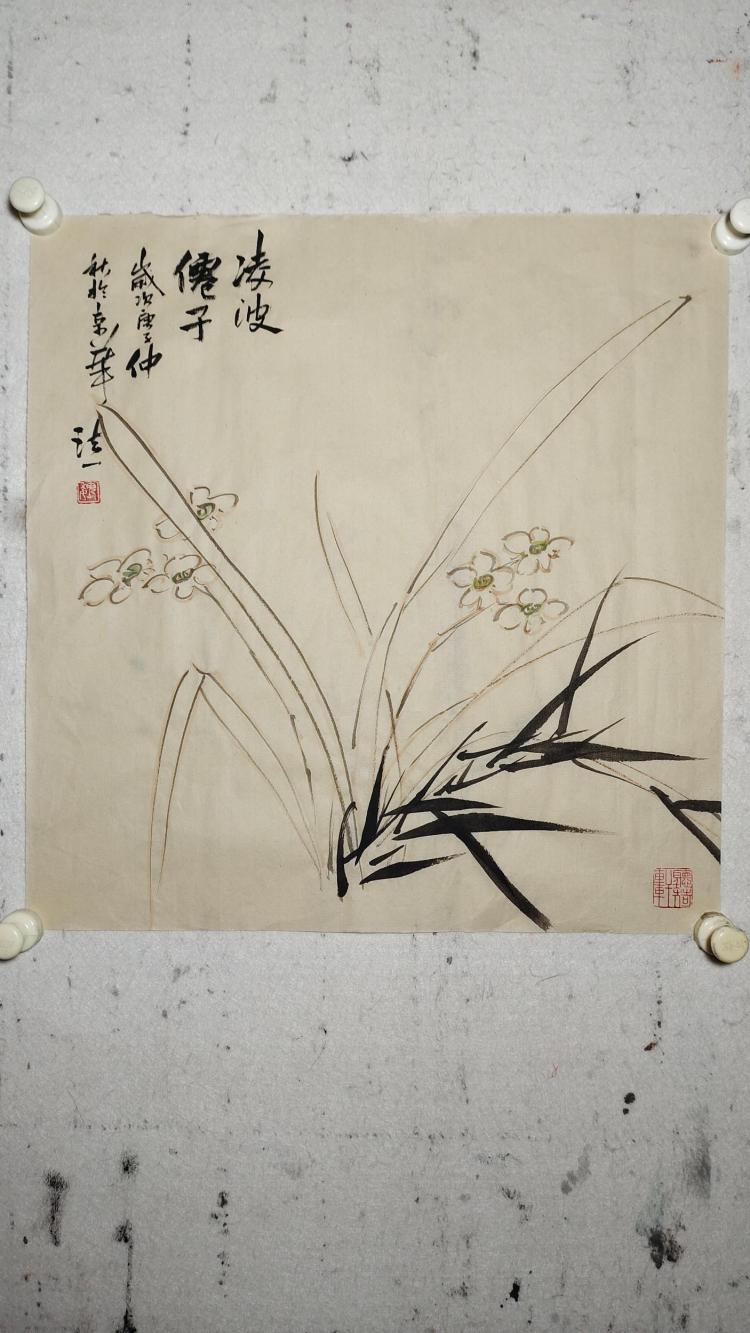 凌波
僊子
歲次庚子仲
秋於京華